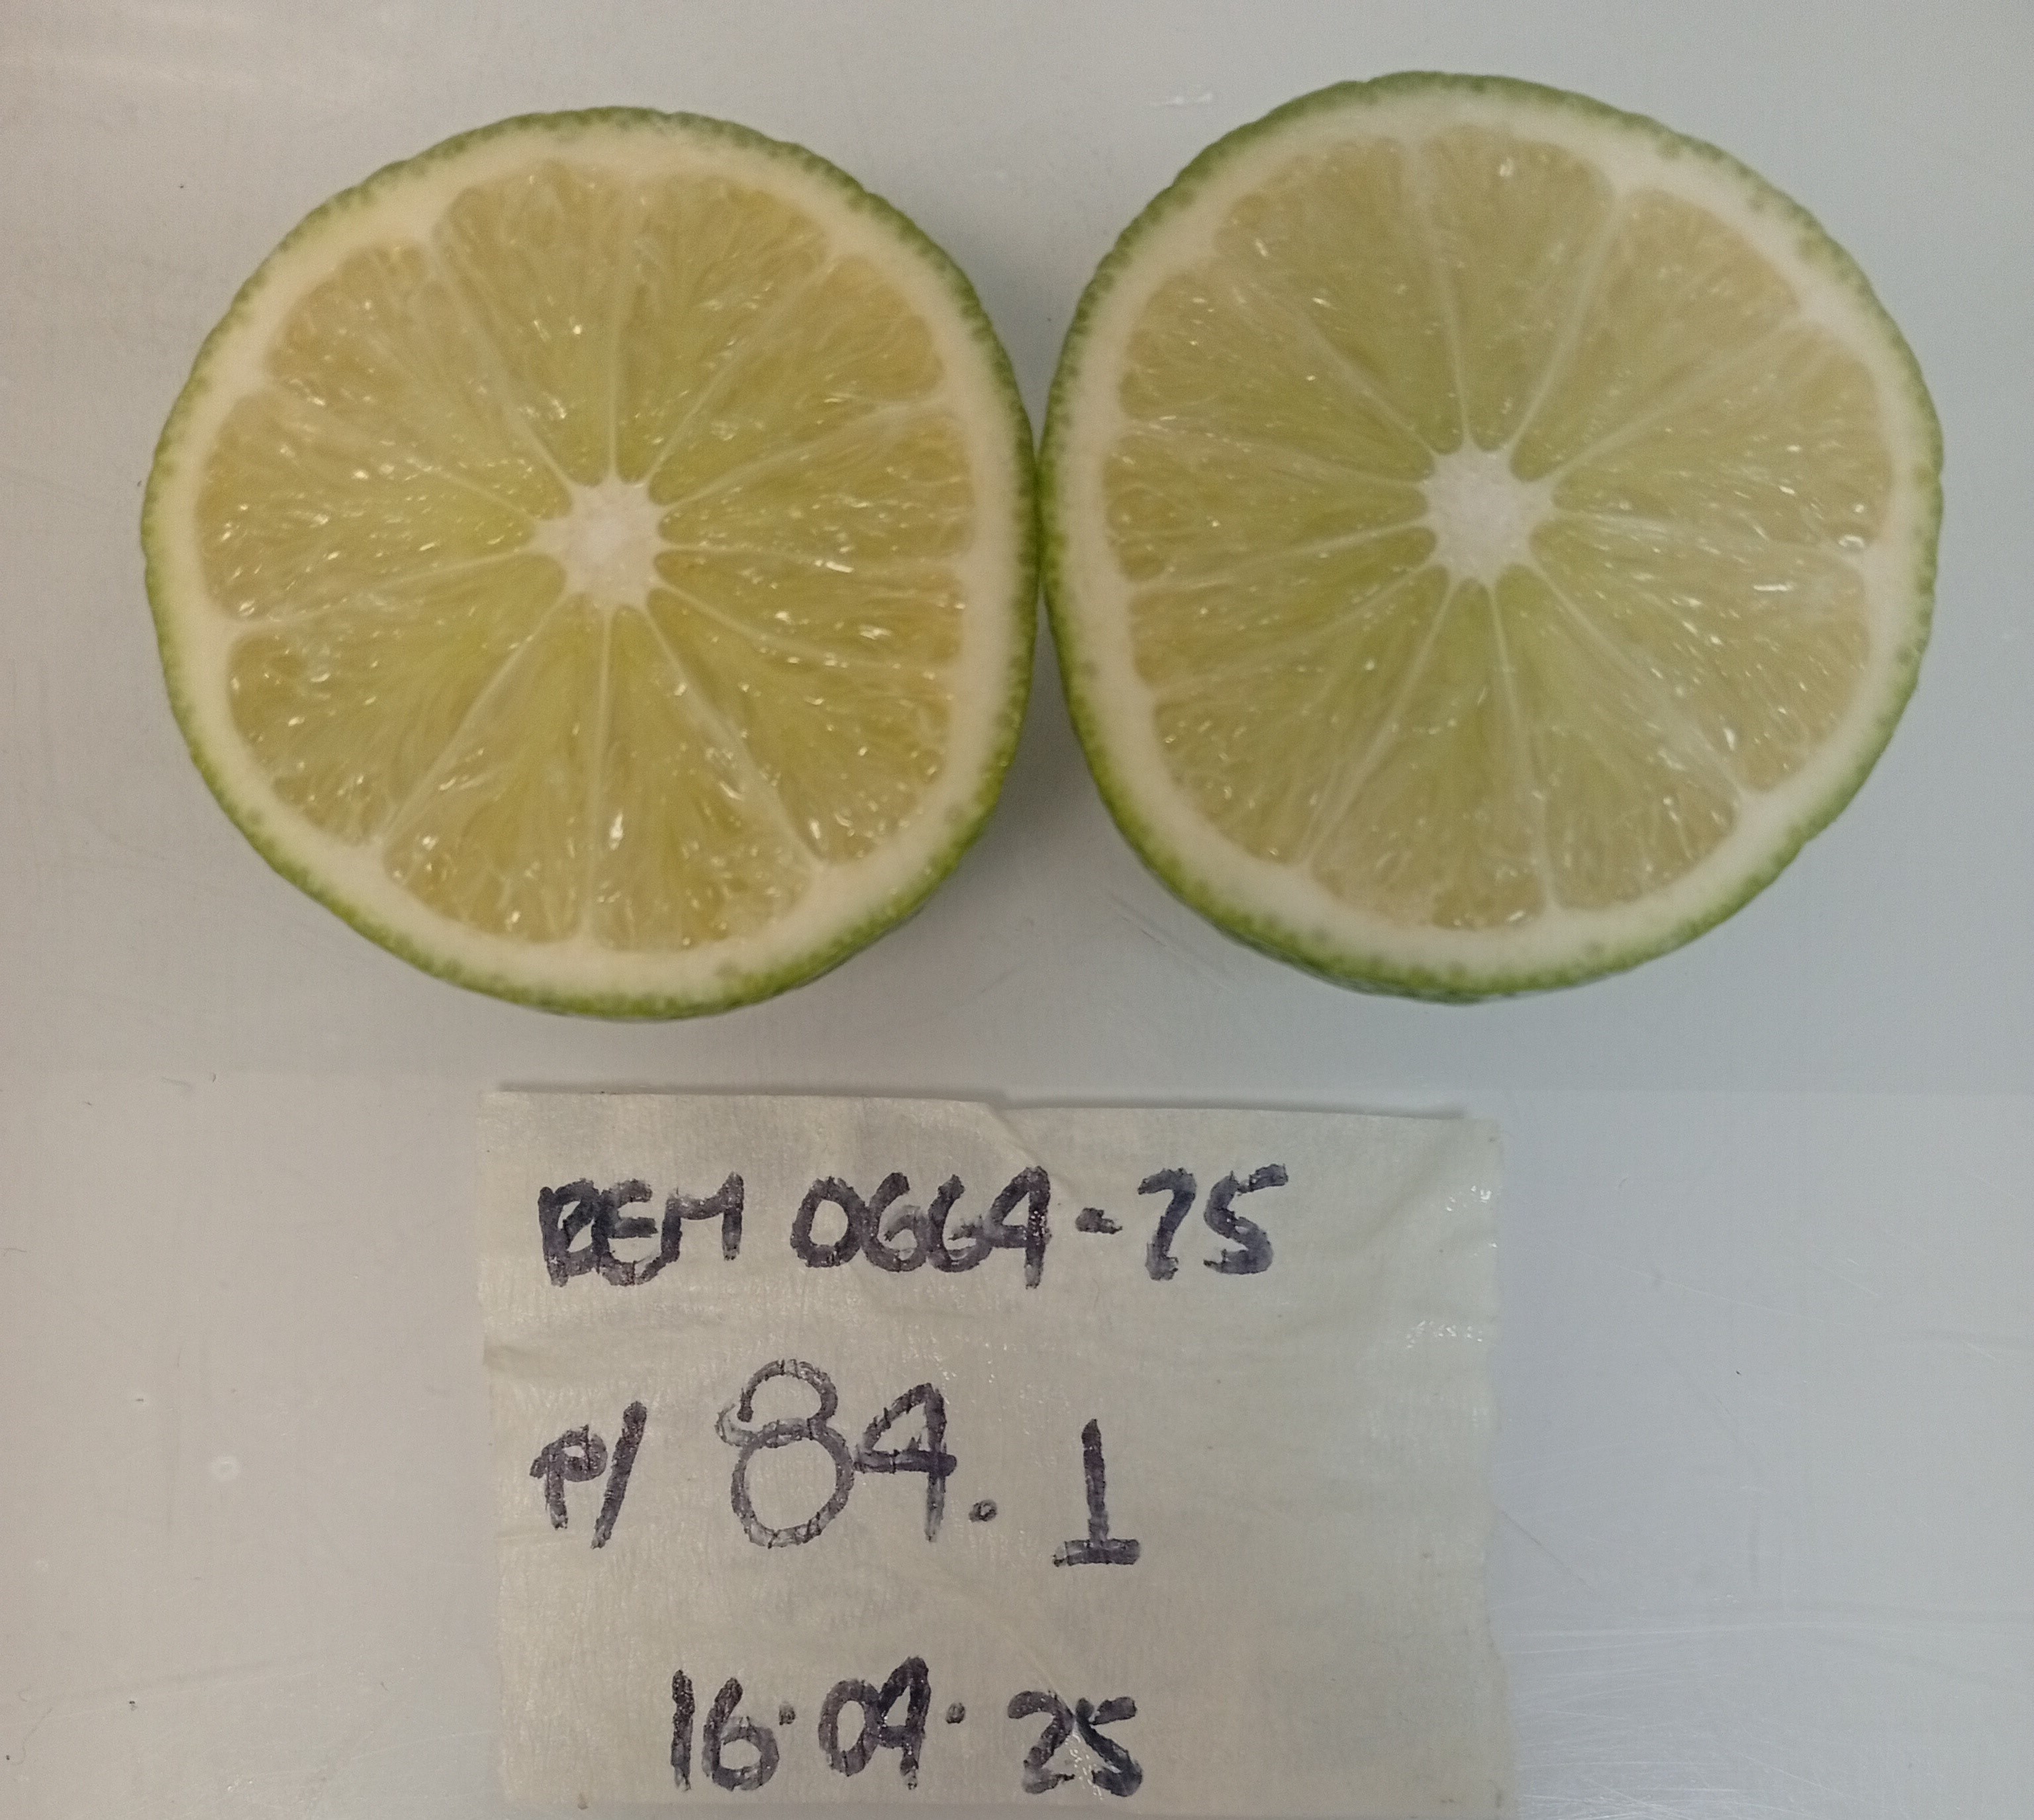 REM 0664-25
P/ 84.1
16.04.25